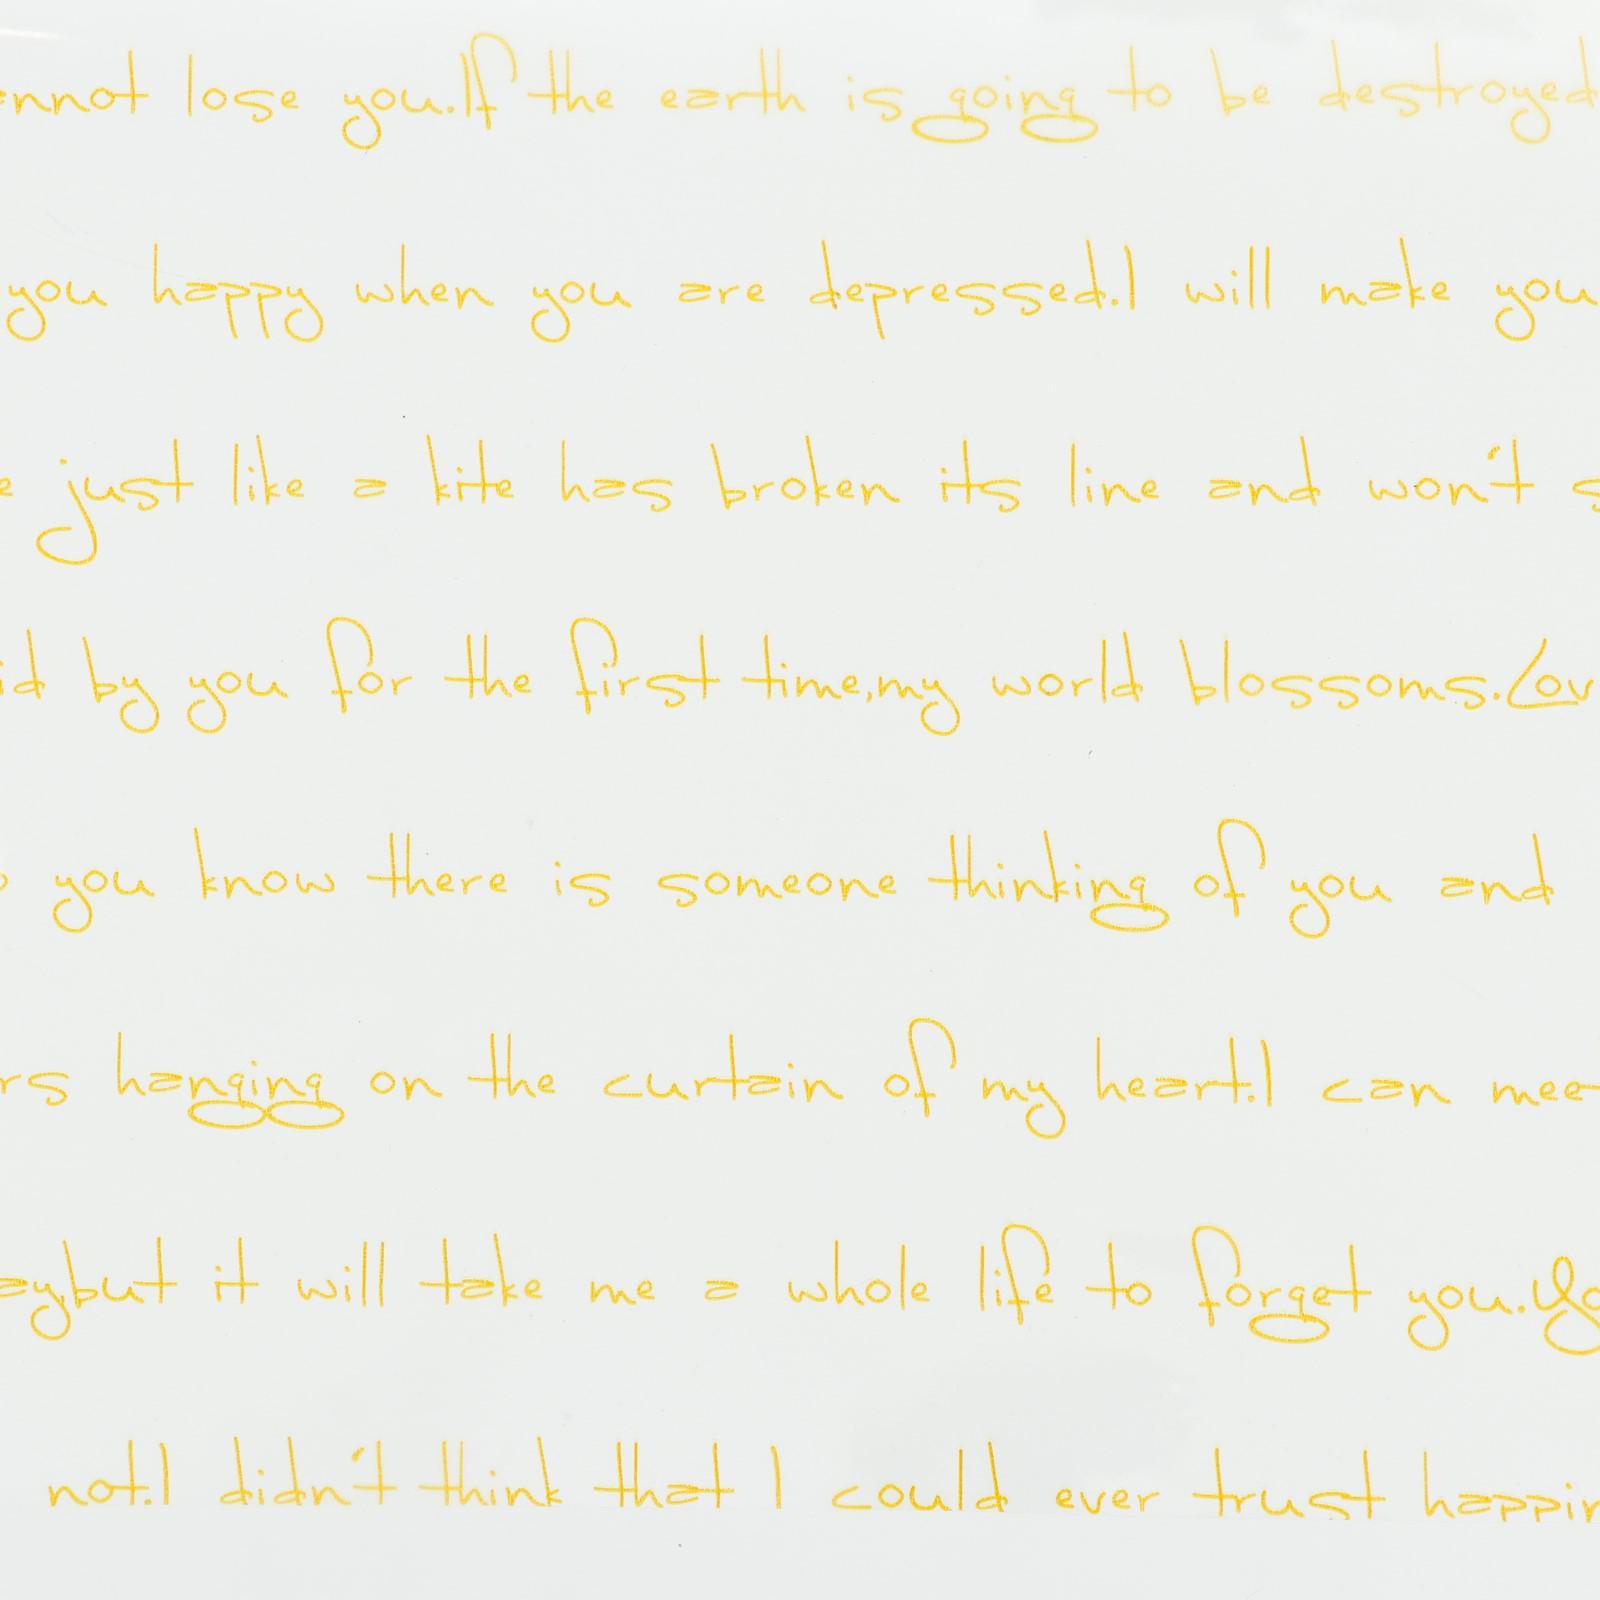 annot lose you.If the earth is going to be destroyed
you happy when you are depressed.I will make you
e just like a kite has broken its line and won't s
id by you for the first time,my world blossoms.Lov
o you know there is someone thinking of you and
rs hanging on the curtain of my heart.I can meet
ay,but it will take me a whole life to forget you.Yo
not.I didn't think that I could ever trust happin